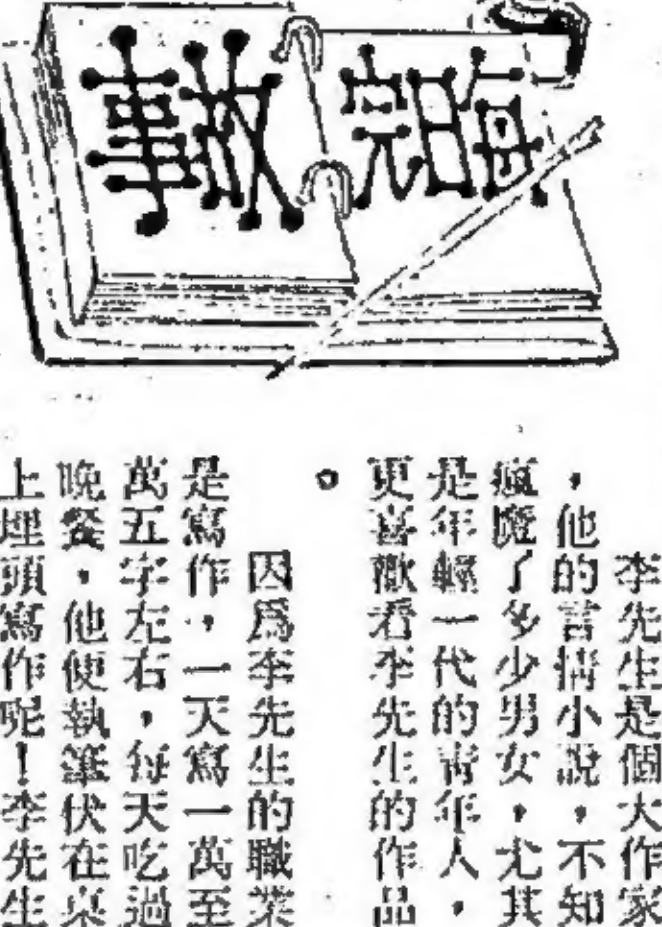 每日完故事
李先生是個大作家
，他的言情小說，不知
瘋魔了多少男女，尤其
是年輕一代的青年人，
更喜歡看李先生的作品
。
因爲李先生的職業
是寫作，一天寫一萬至
萬五字左右，每天吃過
晚餐，他便執筆伏在桌
上埋頭寫作呢！李先生